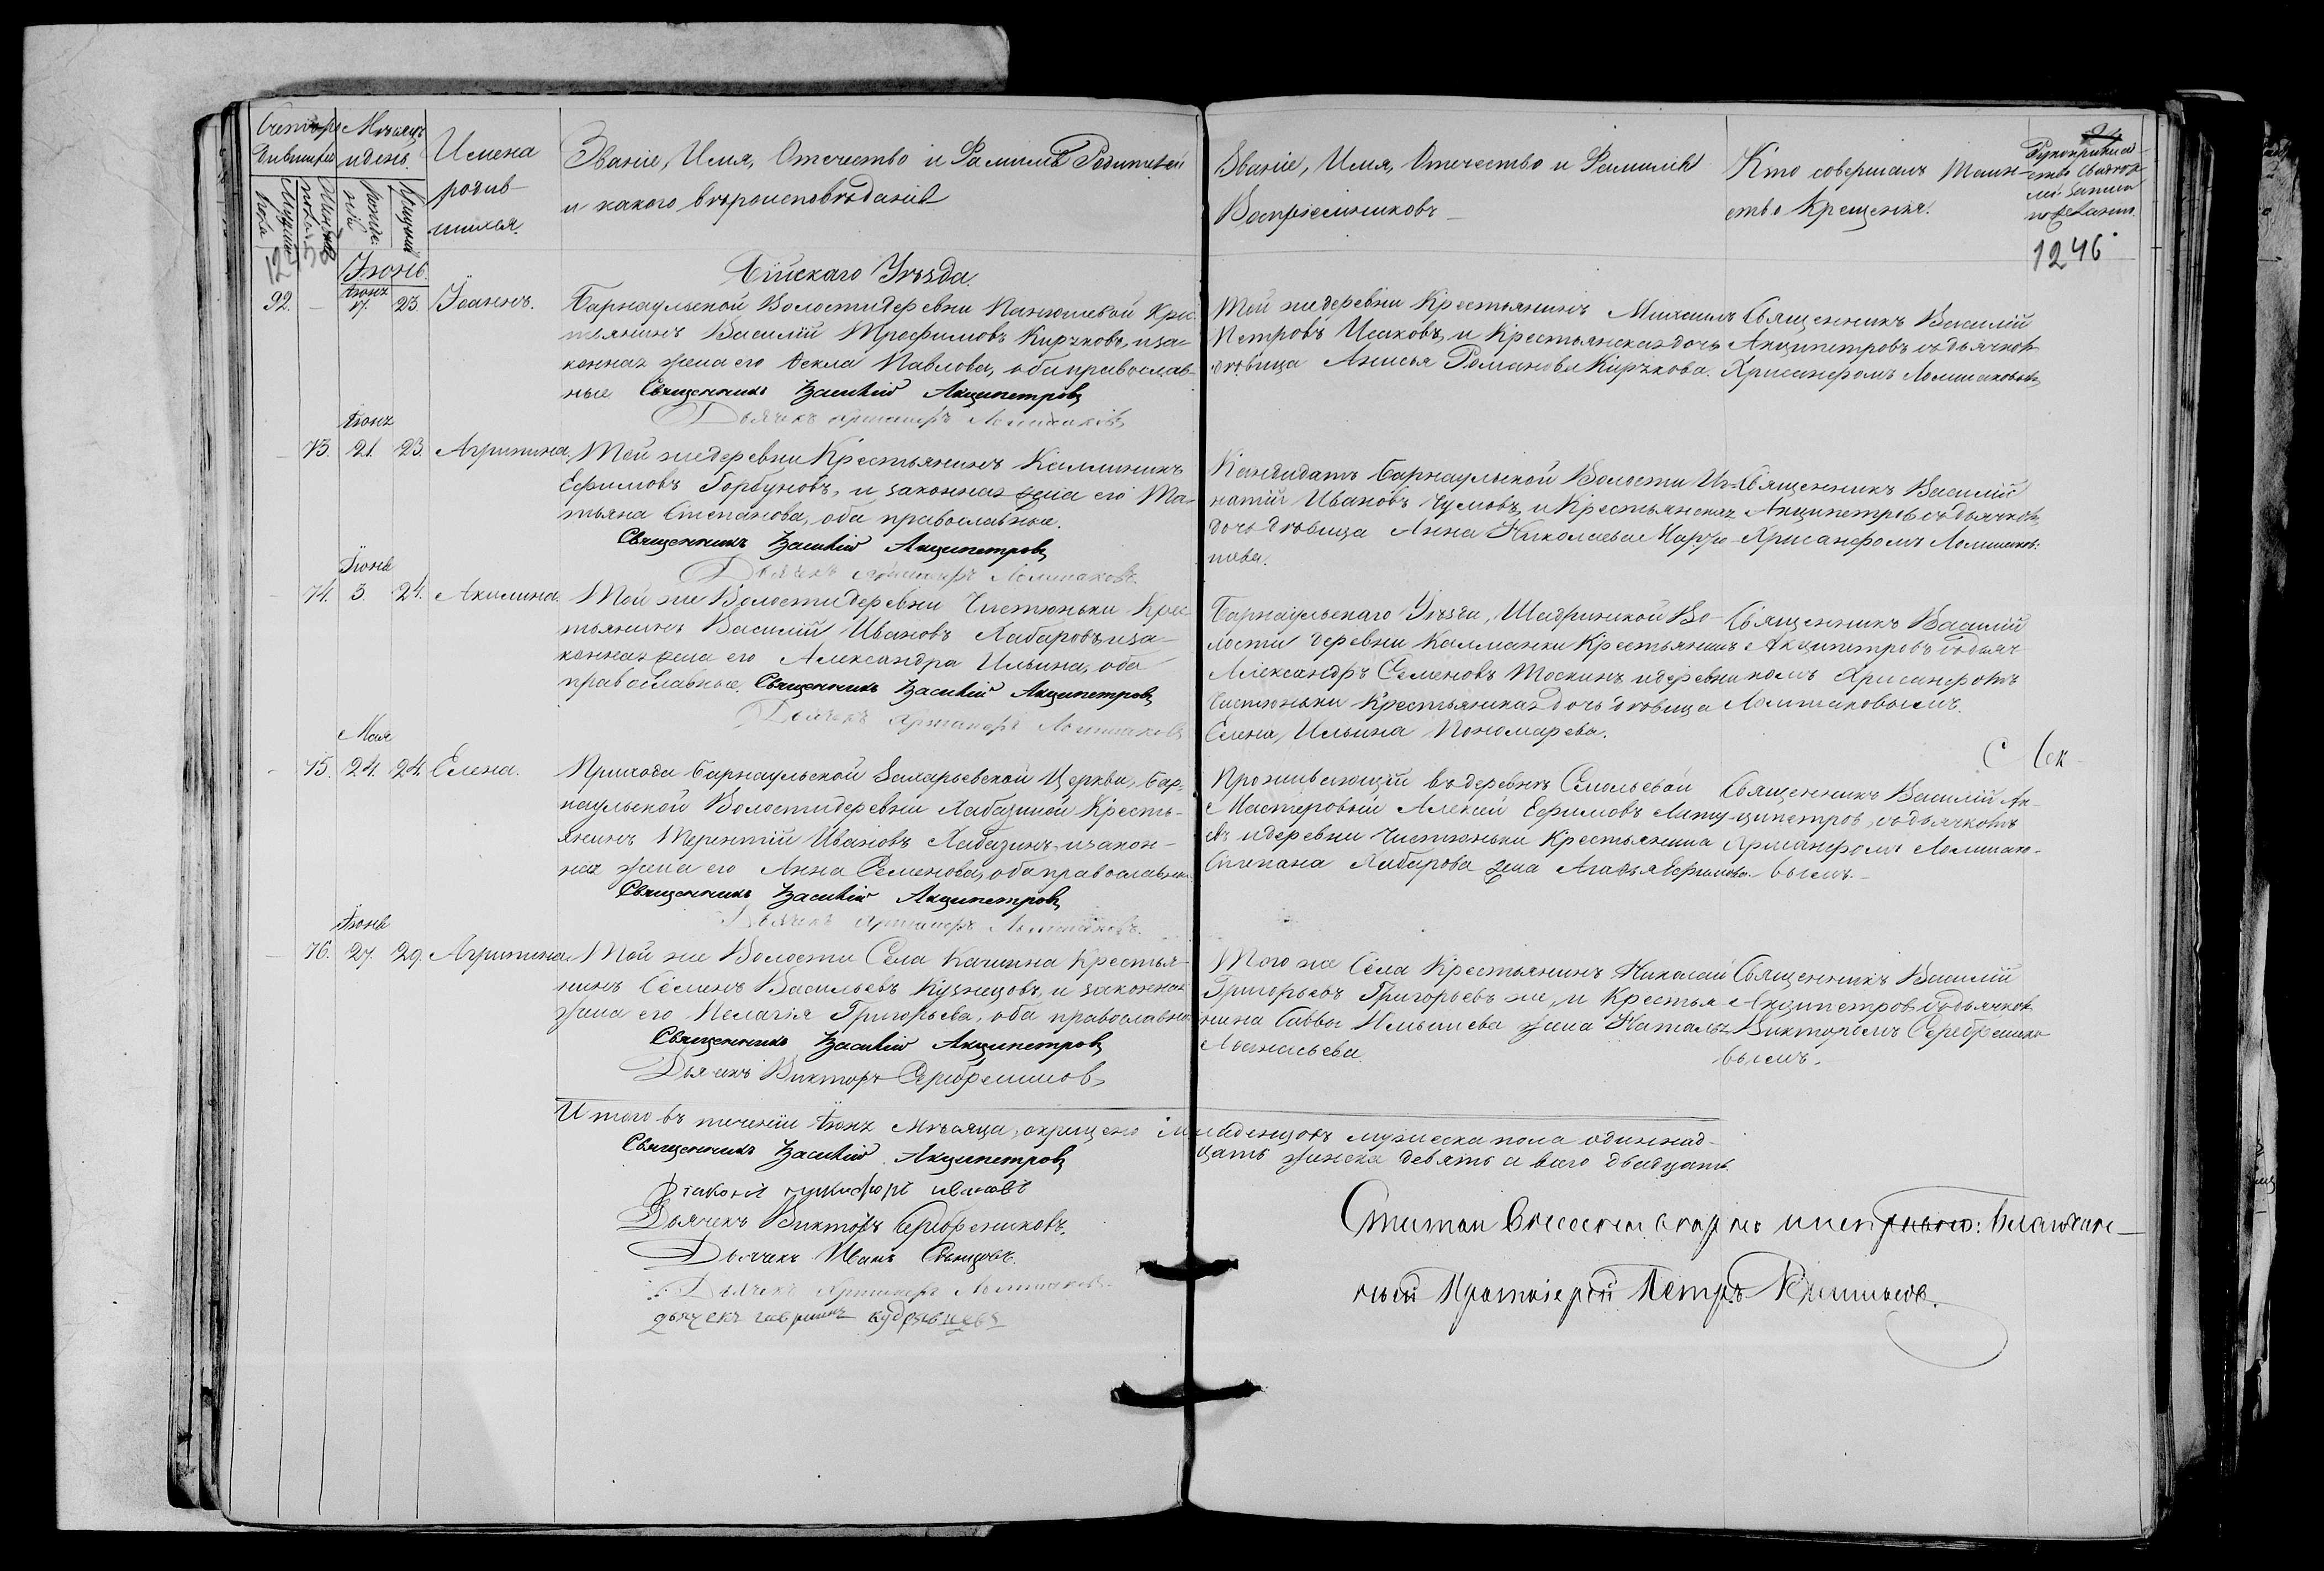 Счетъ родившихся
Мѣсяцъ и день
Имена родив-
шихся.
Званіе, Имя, Отечество и Фамилія Родителей
и какого вѣроисповѣданія
Званіе, Имя, Отечество и Фамилія
Воспріемниковъ
Кто совершалъ Таин-
ство Крещенія.
1246
Мужска пола
Женска пола
рожденія
крещенія
Іюнь.
Бійскаго Уѣзда.
92. – Іюня 17. 23. Іоаннъ.
Барнаульской Волости деревни Панюшевой Крес-
тьянинъ Василій Трефимовъ Киржковъ, и за-
конная жена его Ѳекла Павлова, оба православ-
ные Священникъ Василій Акципетровъ
Дьячекъ Хрисанфъ Ломшаковъ
Той же деревни Крестьянинъ Михаилъ
Петровъ Исаковъ, и Крестьянская дочь
дѣвица Анисья Романова Киржкова.
Священникъ Василій
Акципетровъ съ дьячкомъ
Хрисанфомъ Ломшаковымъ
– 73. Іюня 21. 23. Агрипина.
Той же деревни Крестьянинъ Каллиникъ
Ефимовъ Горбуновъ, и законная жена его Та-
тьяна Степанова, оба православные.
Священникъ Василій Акципетровъ
Дьячекъ Хрисанфъ Ломшаковъ.
Кандидатъ Барнаульской Волости Иг-
натій Ивановъ Чумовъ, и Крестьянская
дочь дѣвица Анна Николаева
Священникъ Василій
Акципетровъ съ дьячкомъ
Хрисанфомъ Ломшаков:
– 74. Іюня 3 24. Акилина.
Той же Волости деревни Чистюньки Крес-
тьянинъ Василій Ивановъ Хабаровъ, и за-
конная жена его Александра Ильина, оба
православные. Священникъ Василій Акципетровъ
Дьячекъ Хрисанфъ Ломшаковъ
Барнаульскаго Уѣзда, Шадринской Во-
лости деревни Калманки Крестьянинъ
Александръ Семеновъ Тоскинъ и деревни
Чистюньки Крестьянская дочь дѣвица
Елена Ильина Пономарева.
Священникъ Василій
Акципетровъ съ дьяч-
комъ Хрисанфомъ
Ломшаковымъ.
– 75. Мая 24. 24. Елена.
Прихода Барнаульской Захарьевской Церкви, Бар-
наульской Волости деревни Хабазиной Кресть-
янинъ Терентій Ивановъ Хабазинъ, и закон-
ная жена его Анна Семенова, оба православные.
Священникъ Василій Акципетровъ
Дьячекъ Хрисанфъ Ломшаковъ.
Проживающій въ деревнѣ
Мастеровой Алексѣй Ефимовъ
и деревни Чистюньки Крестьянина
Степана Хабарова жена Агафья Ефимова
Священникъ Василій Ак-
ципетровъ, съ дьячкомъ
Хрисанфомъ Ломшако-
вымъ.
– 76. Іюня 27. 29. Агрипина.
Той же Волости Села Кашина Крестья-
нинъ Семенъ Васильевъ Кузнецовъ, и законная
жена его Пелагія Григорьева, оба православные
Священникъ Василій Акципетровъ
Дьячекъ Викторъ Серебрениковъ
Того же Села Крестьянинъ Николай
Григорьевъ Григорьевъ же, и Крестья-
нина Саввы жена Наталья
Аѳанасьева.
Священникъ Василій
Акципетровъ съ дьячком
Викторомъ Серебренико-
вымъ.
Итого въ теченіи Іюня Мѣсяца, окрещено младенцовъ мужеска пола одиннад-
цать женска девять а всего двадцать
Священникъ Василій Акципетровъ
Діаконъ Никифоръ Ивановъ
Дьячекъ Викторъ Серебрениковъ.
Дьячекъ Иванъ
Дьячекъ Хрисанфъ Ломшаковъ
дьячекъ гавриилъ кудрявцевъ
Благочин-
ный Протоіерей Петръ